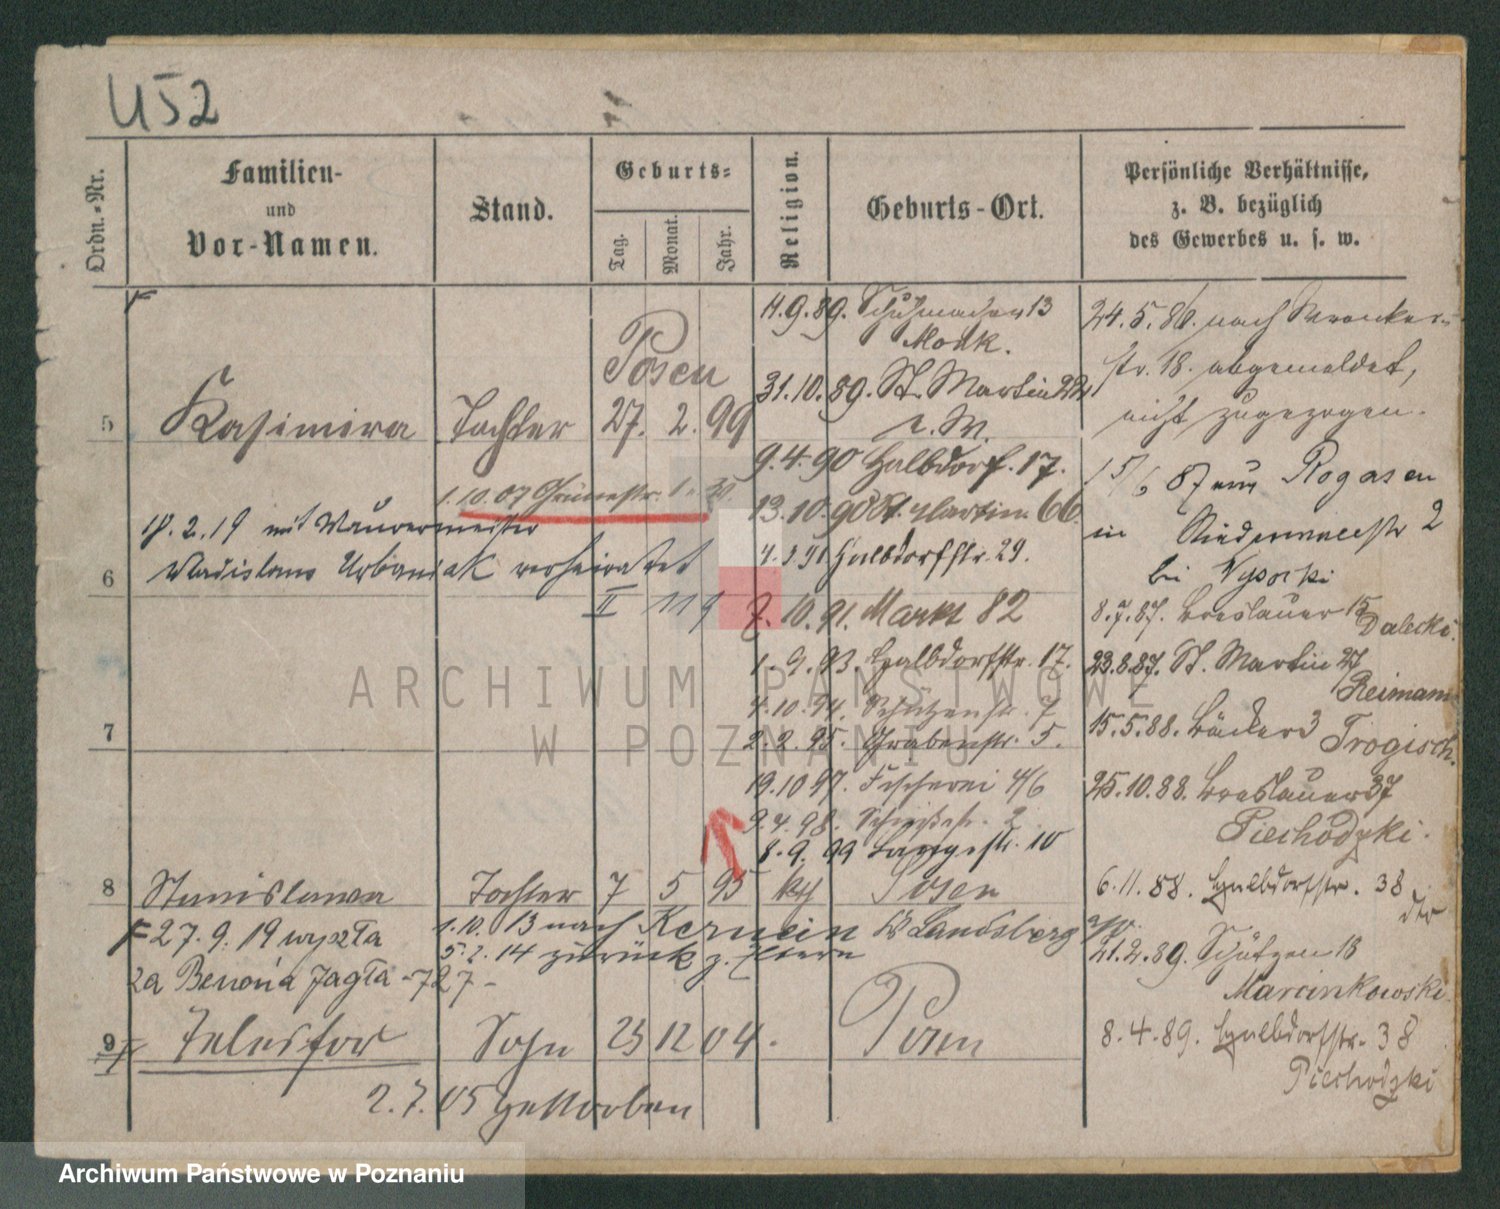 U52
Ordn.-Nr.
Familien-
und
Vor-Namen.
Stand.
Geburts-
Tag.
Monat.
Jahr.
Religion.
Geburts-Ort.
Persönliche Verhältnisse,
z. B. bezüglich
des Gewerbes u. s. w.
5
Kasimira Tochter
Posen
27. 2. 99
1.10.07 Grünestr.
18.2.19 mit Maurermeister
Vladislaus Urbaniak verheiratet
II 119
6
7
8
Stanislawa Tochter 7 5 95 kth Posen
27.9.19 wyszła
za Benona Jagła - 727 -
1.10.13 nach Kernein Kr Landsberg a/W.
5.2.14 zurück z. Eltern
9
Telesfor Sohn 23 12 04. Posen
2.7.05 gestorben
11.9.89. Schuhmacher 13
31.10.89. St. Martin 22
9.4.90 Halbdorf. 17.
13.10.90 St. Martin 66
4.3.91 Halbdorfstr. 29.
7.10.91. Markt 82
1.9.93. Halbdorfstr. 17.
4.10.94. Schützenstr. 7
2.2.95. Grabenstr. 5.
19.10.97. Fischerei 4/6
9.4.98. 2
8.9.99 Langestr. 10
24.5.86. nach Wronker-
str. 18. abgemeldet,
nicht zugezogen.
15/6 87 aus Rogasen
in 2
bei Wysocki
8.7.87. Breslauer 15
Dalecki.
23.8.87. St. Martin 27
Reimann
15.5.88. Bäcker 3
Trogisch.
25.10.88. Breslauer 37
Piechodzki.
6.11.88. Halbdorfstr. 38
dto
21.2.89. Schützen 18
Marcinkowski.
8.4.89. Halbdorfstr. 38
Piechodzki
ARCHIWUM PAŃSTWOWE
W POZNANIU
Archiwum Państwowe w Poznaniu